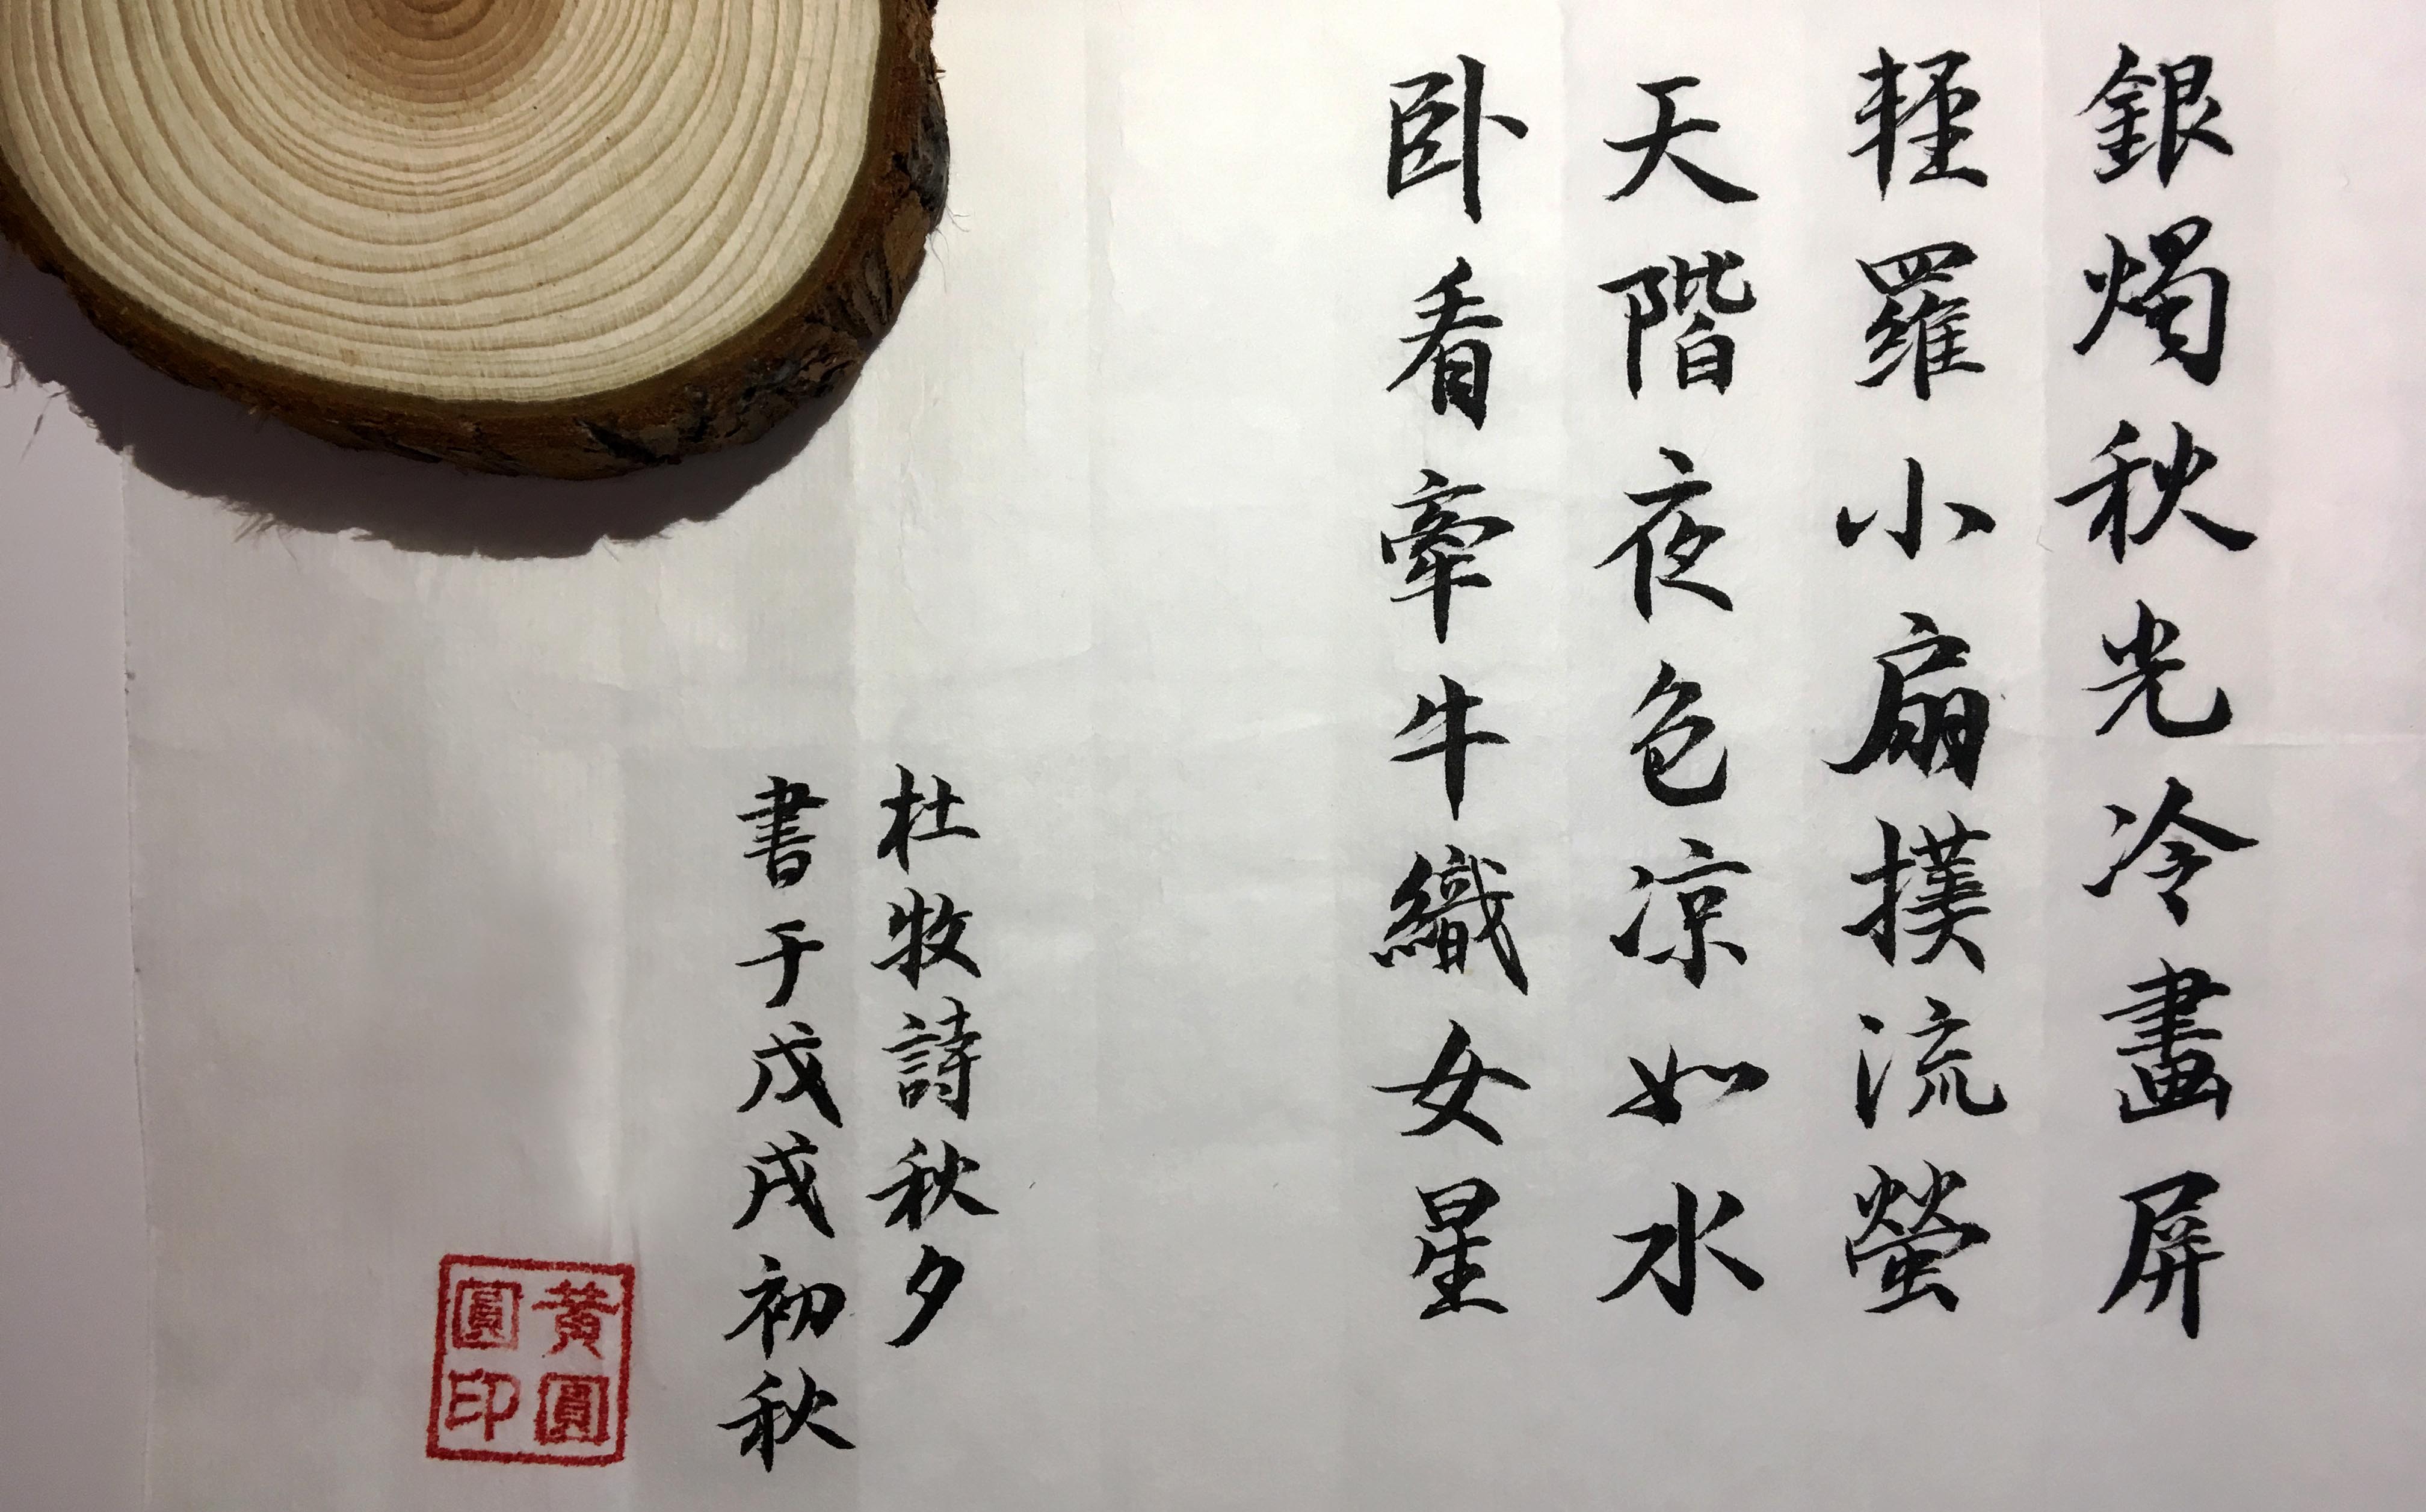 銀燭秋光冷畫屏
輕羅小扇撲流螢
天階夜色凉如水
卧看牽牛織女星
杜牧詩秋夕
書于戊戌初秋
黄圓
圓印